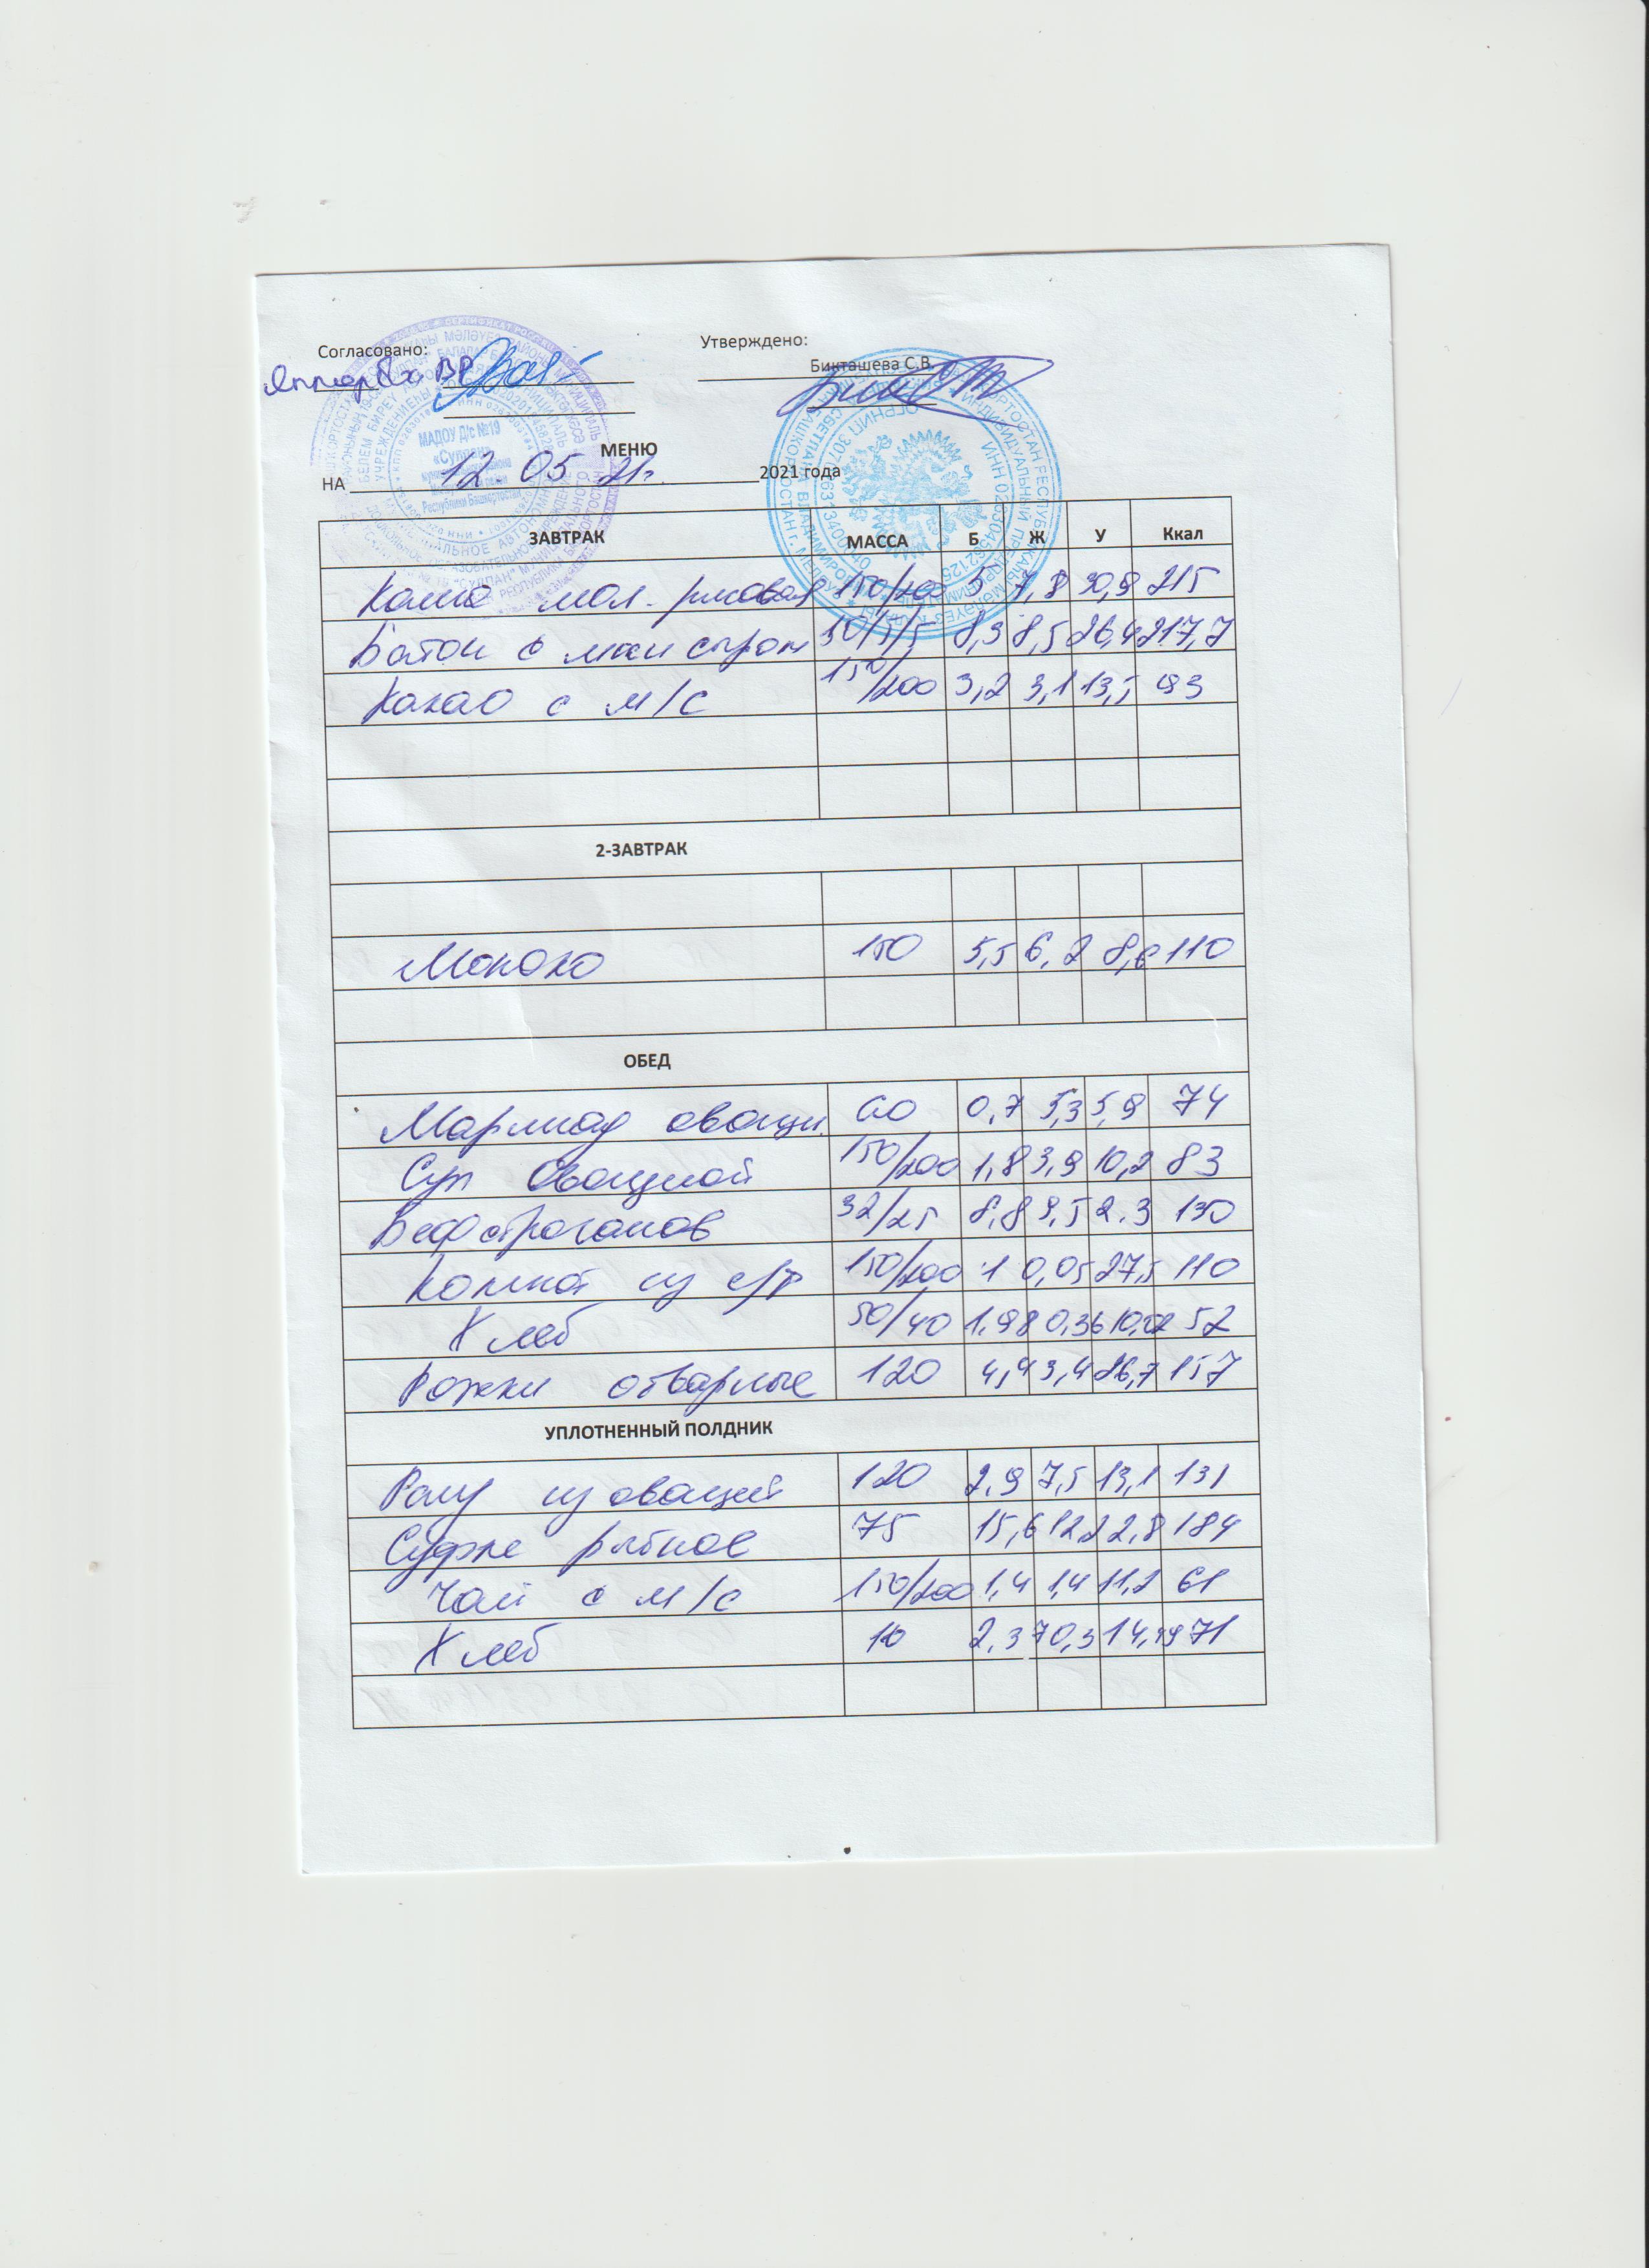 Согласовано:
Утверждено:
Бикташева С.В.
МАДОУ Д/с №19
МЕНЮ
НА 12.05 21г. 2021 года
ЗАВТРАК МАССА Б Ж У Ккал
Каша мол. рисовая 150/200 5 7,8 30,9 215
Батон с мас сыром 30/5/5 8,3 8,5 26,4 217,7
Какао с м/с 150/200 3,2 3,1 13,5 93
2-ЗАВТРАК
Молоко 150 5,5 6,2 8,6 110
ОБЕД
Маринад овощн. 60 0,7 5,3 5,9 74
Суп овощной 150/200 1,8 3,9 10,2 83
Бефстроганов 32/25 8,8 9,5 2.3 130
Компот из с/ф 150/200 1 0,05 27,5 110
Хлеб 50/40 1,98 0,36 10,02 52
Рожки отварные 120 4,4 3,4 26,7 157
УПЛОТНЕННЫЙ ПОЛДНИК
Рагу из овощей 120 2,9 7,5 13,1 131
Суфле рыбное 75 15,6 12,2 2,8 184
Чай с м/с 150/200 1,4 1,4 11,2 61
Хлеб 2,37 0,3 14,49 71